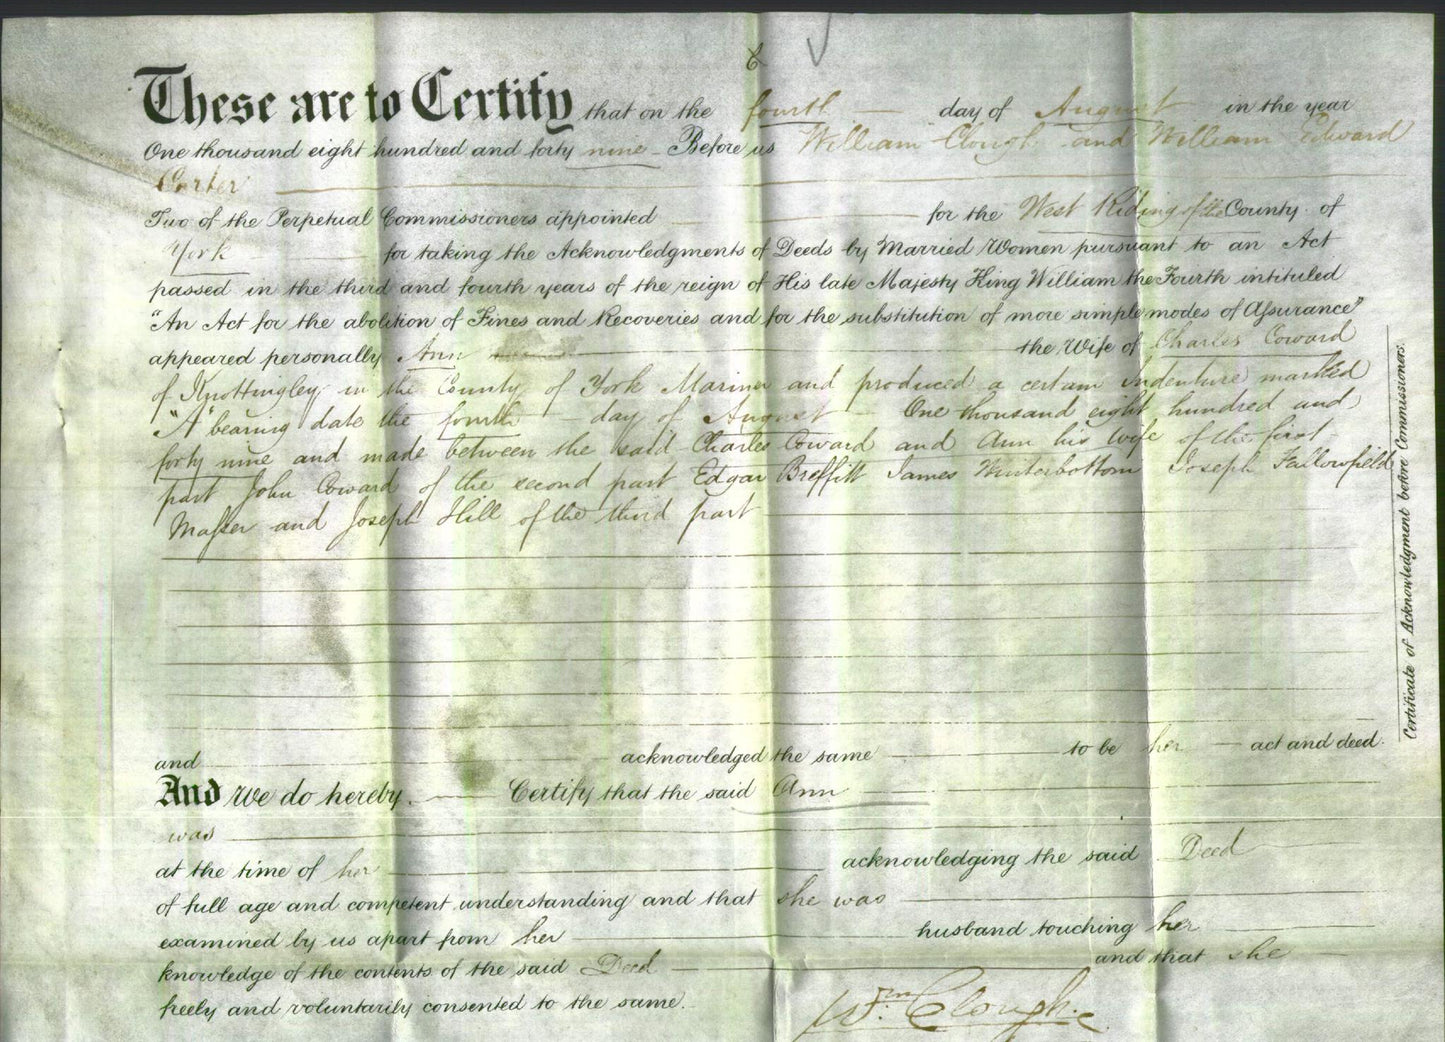 These are to Certify that on the fourth day of August in the year
One thousand eight hundred and forty nine Before us William Clough and William Edward
Carter
Two of the Perpetual Commissioners appointed for the West Riding of the County of
York for taking the Acknowledgments of Deeds by Married Women pursuant to an Act
passed in the third and fourth years of the reign of His late Majesty King William the Fourth intituled
"An Act for the abolition of Fines and Recoveries and for the substitution of more simple modes of Assurance"
appeared personally Ann the Wife of Charles Coward
of Knottingley in the County of York Mariner and produced a certain Indenture marked
"A" bearing date the fourth day of August One thousand eight hundred and
forty nine and made between the said Charles Coward and Ann his wife of the first
part John Coward of the second part Edgar Breffitt James Winterbottom Joseph Fallowfield
Masser and Joseph Hill of the third part
and acknowledged the same to be her act and deed.
And we do hereby Certify that the said Ann
was
at the time of her acknowledging the said Deed
of full age and competent understanding and that she was
examined by us apart from her husband touching her
knowledge of the contents of the said Deed and that she
freely and voluntarily consented to the same.
Wm Clough
Certificate of Acknowledgment before Commissioners.